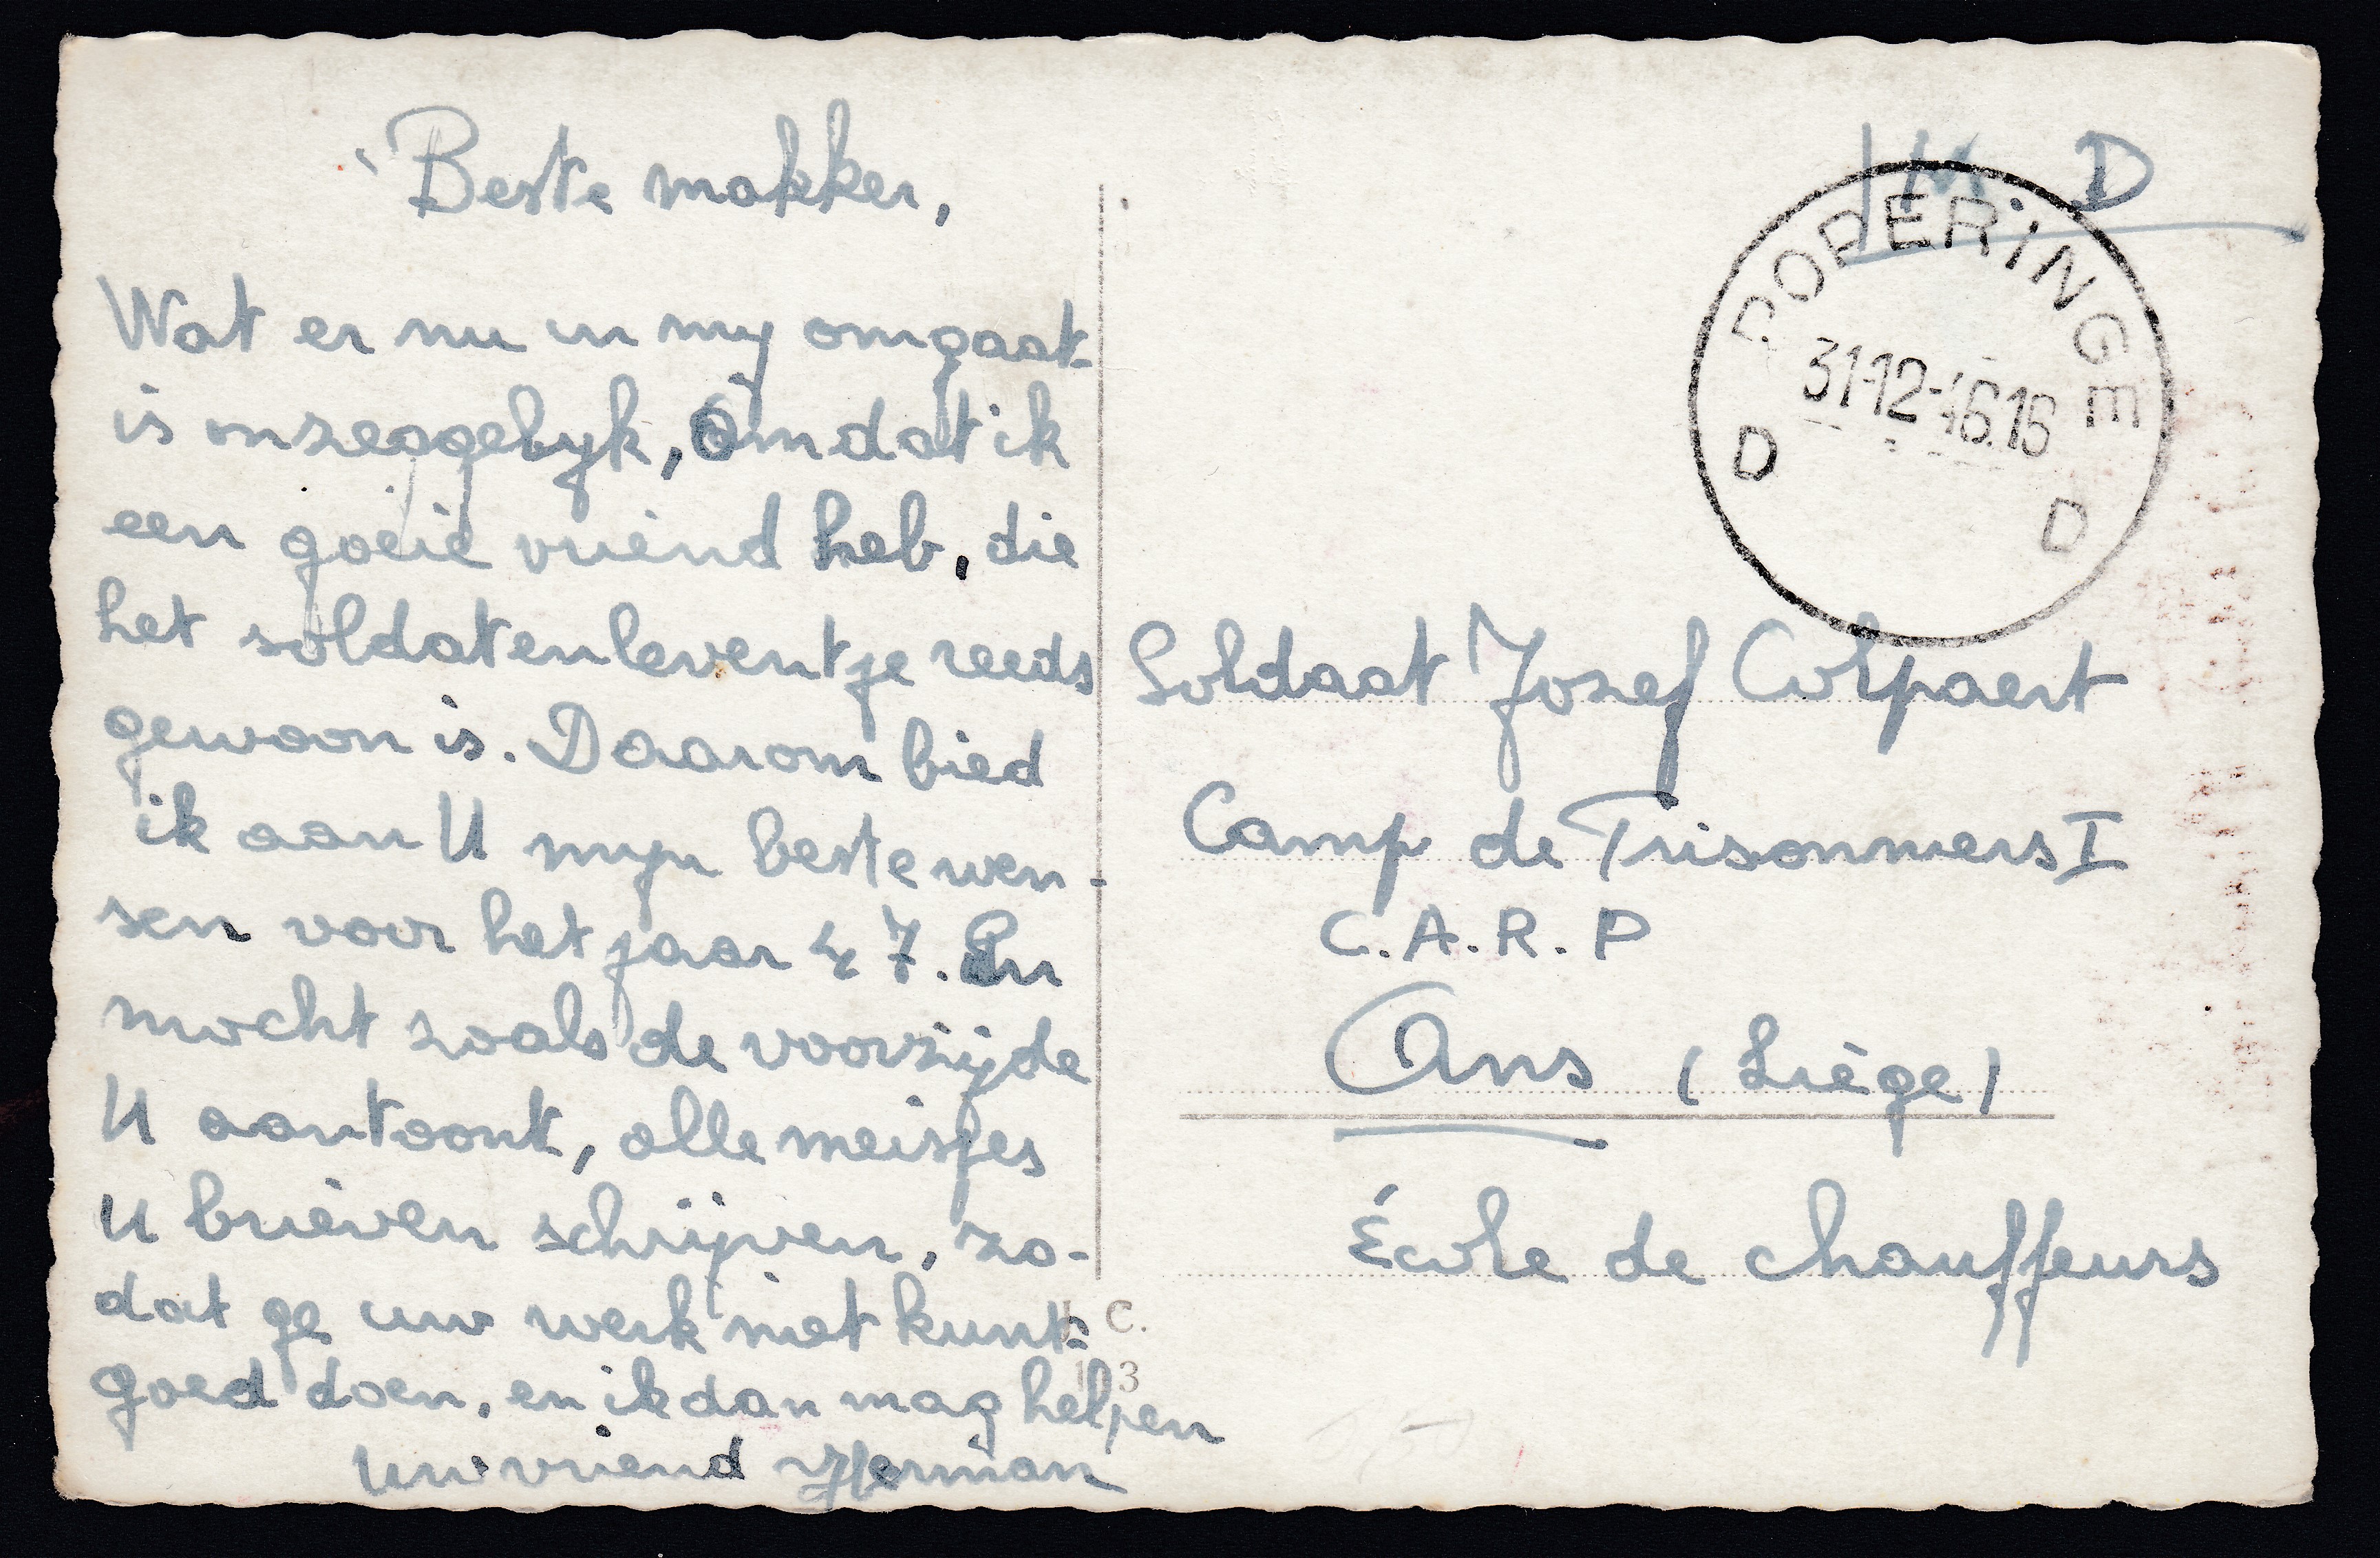 Beste makker,
Wat er nu in my omgaat
is onzeggelyk, Omdat ik
een goeie vriend heb, die
het soldatenleventje reeds
gewoon is. Daarom bied
ik aan U mijn beste wen-
sen voor het jaar 47. En
mocht zoals de voorzijde
U aantoont, alle meisjes
U brieven schrijven, zo-
dat ge uw werk niet kunt
goed doen, en ik dan mag helpen
Uw vriend Herman
M. D
POPERINGE
31-12-46.16
D D
Soldaat Jozef Colpaert
Camp de Prisonniers I
C.A.R.P
Ans (Liège)
École de chauffeurs
C.
3